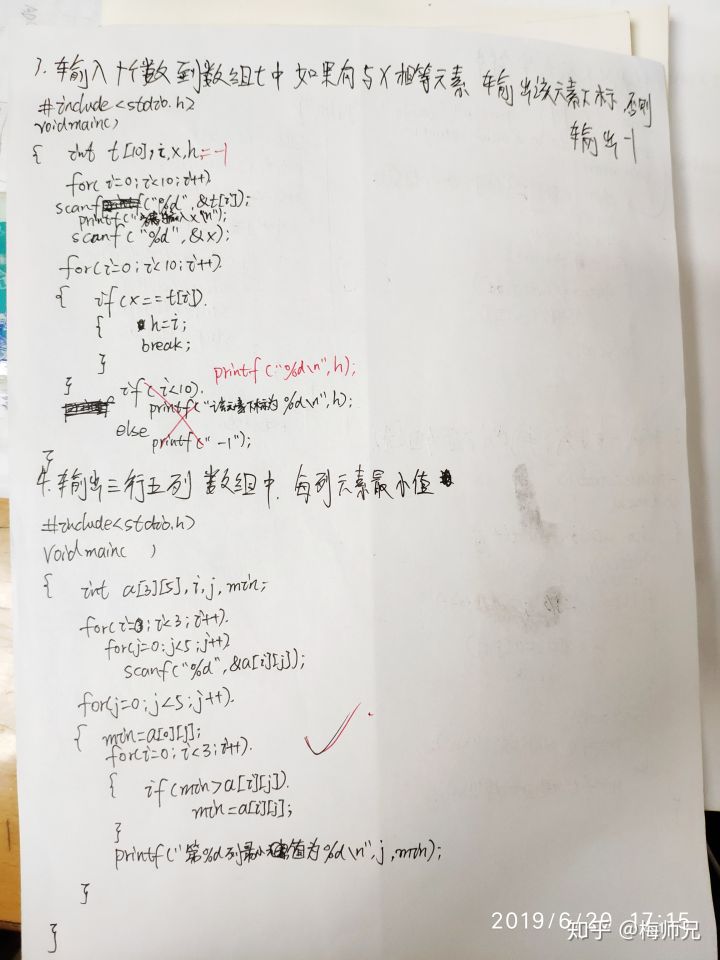 3. 输入十个数到数组t中 如果有与x相等元素 输出该元素下标,否则
输出-1
#include<stdio.h>
void main()
{ int t[10],i,x,h=-1
for(i=0;i<10;i++)
scanf("%d",&t[i]);
printf("请输入x\n");
scanf("%d",&x);
for(i=0;i<10;i++)
{ if(x==t[i])
{ h=i;
break;
}
printf("%d\n",h);
} if(i<10)
printf("该元素下标为%d\n",h);
else
printf("-1");
}
4.输出三行五列 数组中,每列元素最小值
#include<stdio.h>
void main( )
{ int a[3][5],i,j,min;
for(i=0;i<3;i++)
for(j=0;j<5;j++)
scanf("%d",&a[i][j]);
for(j=0;j<5;j++)
{ min=a[0][j];
for(i=0;i<3;i++)
{ if(min>a[i][j])
min=a[i][j];
}
printf("第%d列最小值为%d\n",j,min);
}
}
2019/6/20 17:15
知乎 @梅师兄